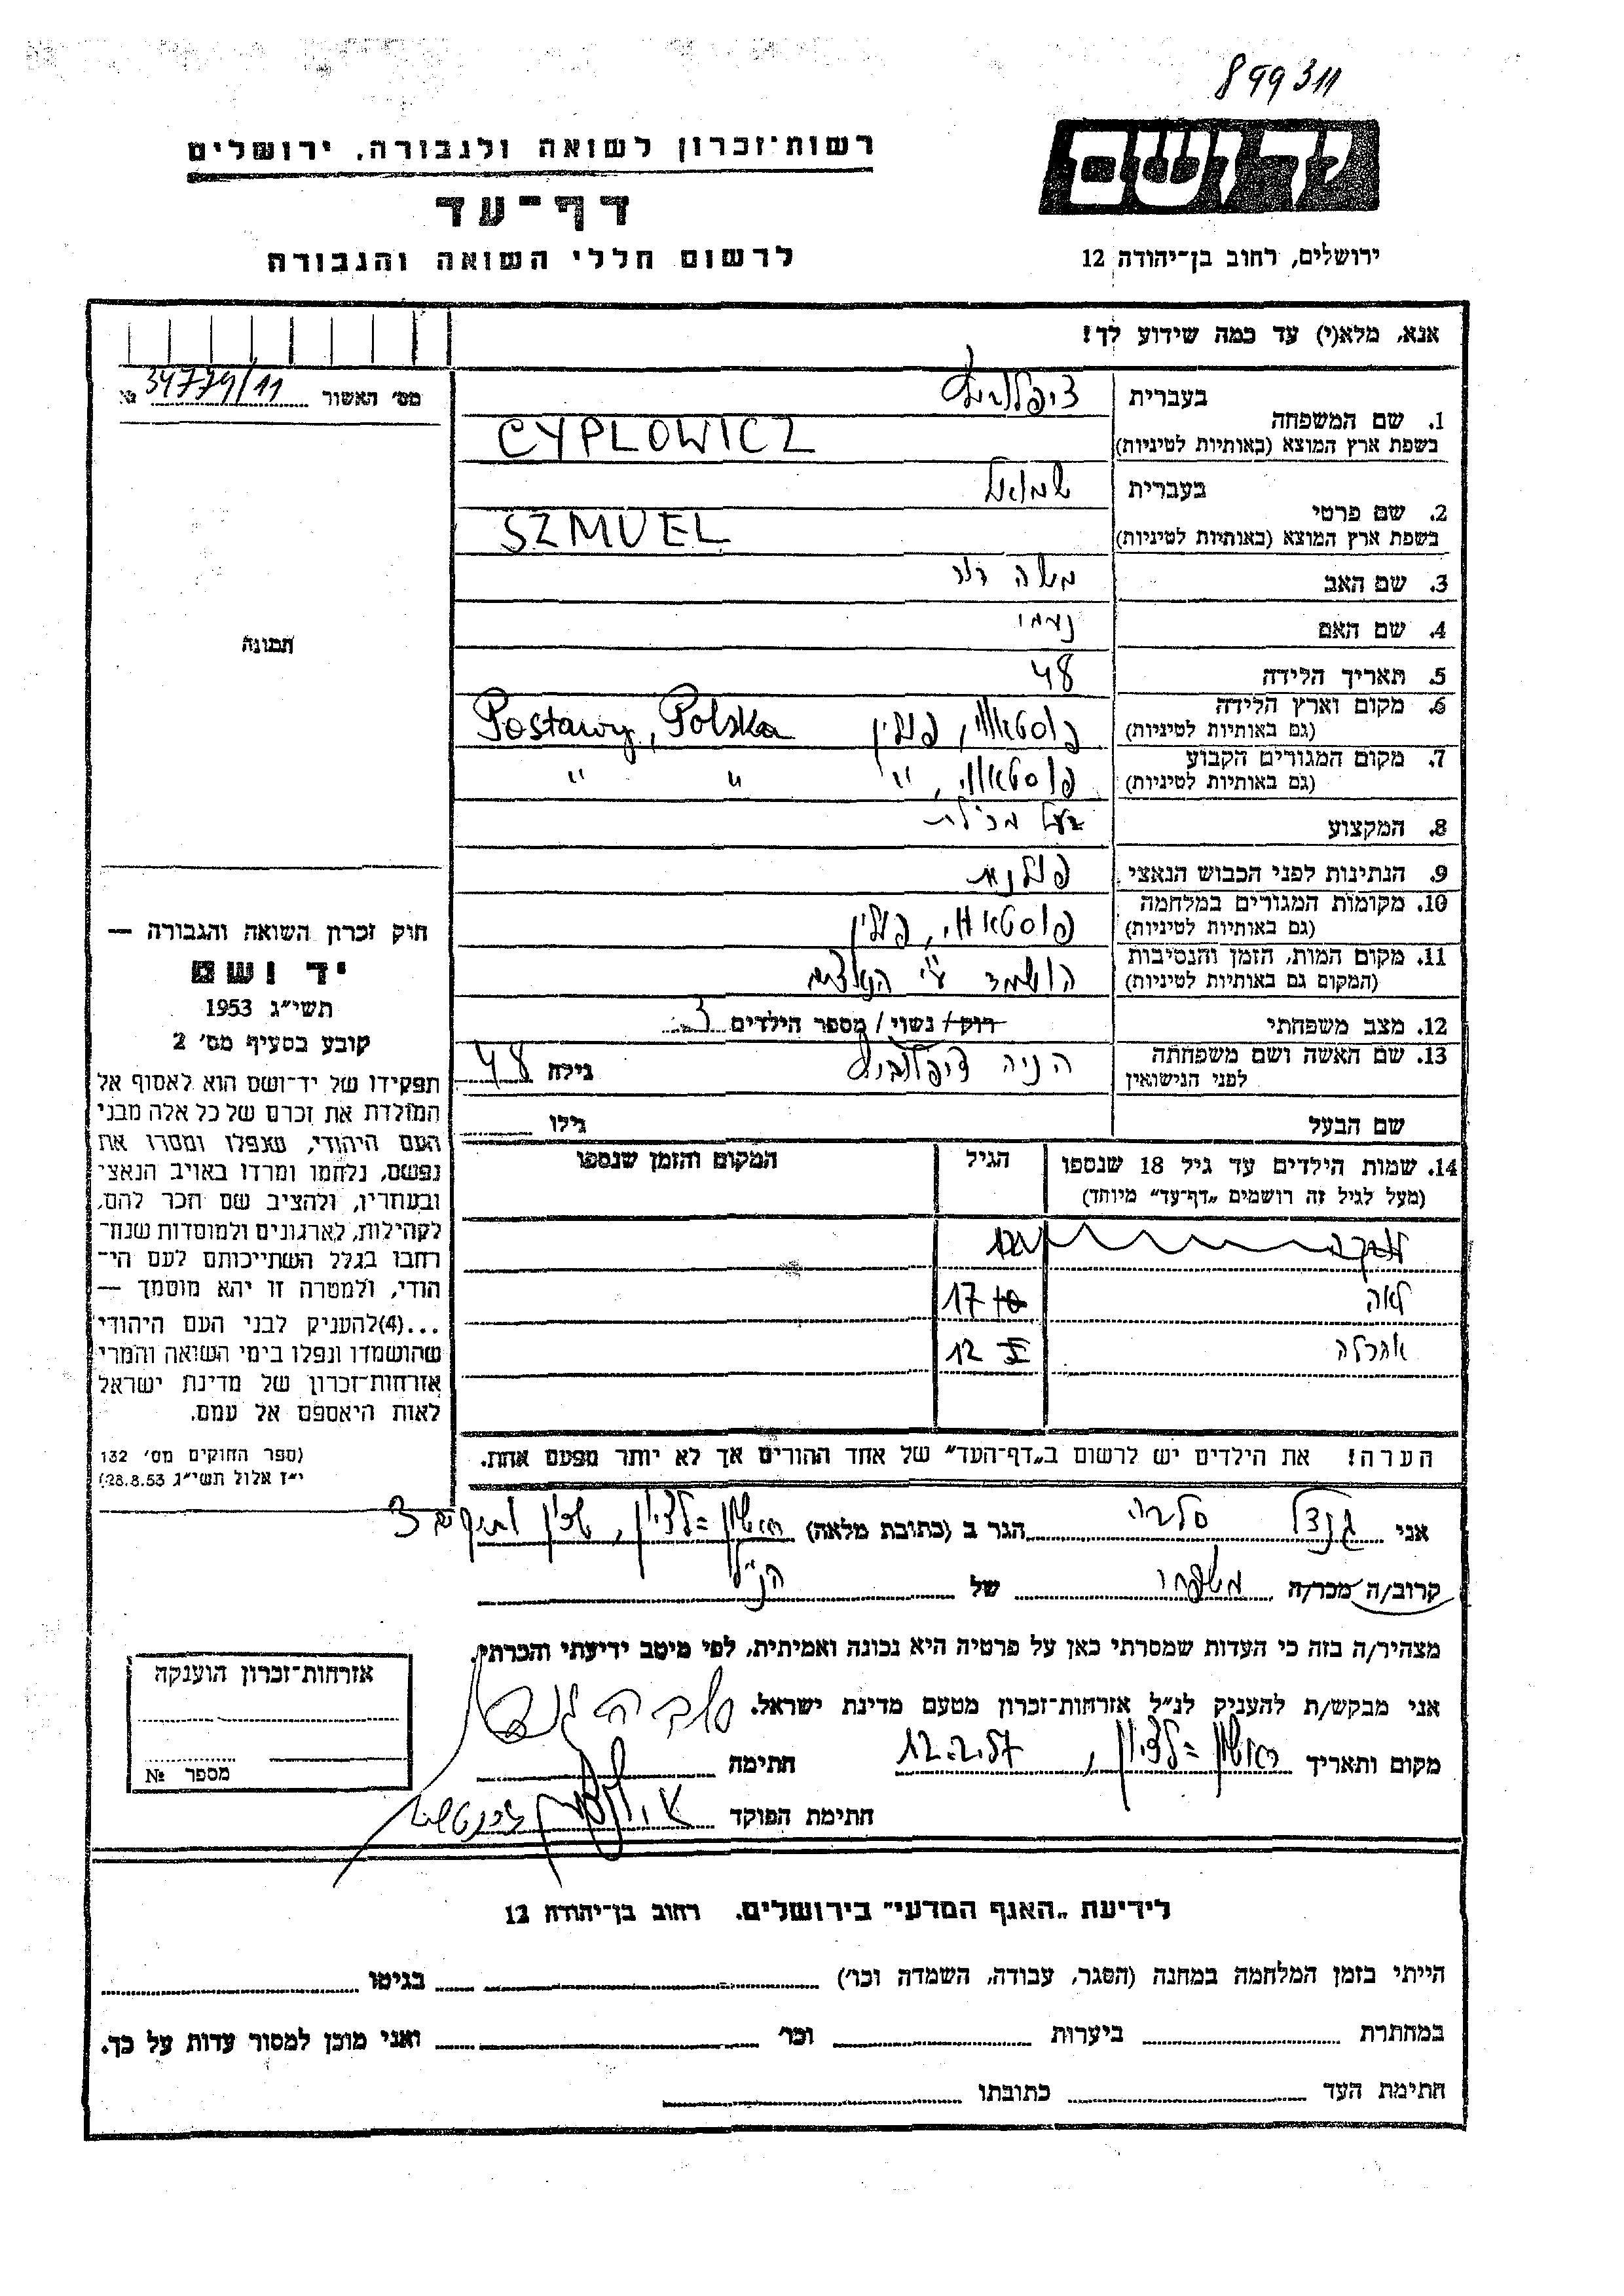 899311
יד ושם
רשות־זכרון לשואה ולגבורה, ירושלים
דף־עד
לרשום חללי השואה והגבורה
ירושלים, רחוב בן־יהודה 12
אנא, מלא(י) עד כמה שידוע לך!
מס׳ האשור 34779/11 №
1. שם המשפחה
בעברית ציפלוביץ
בשפת ארץ המוצא (באותיות לטיניות) CYPLOWICZ
2. שם פרטי
בעברית שמואל
בשפת ארץ המוצא (באותיות לטיניות) SZMUEL
3. שם האב משה
4. שם האם נעמי
5. תאריך הלידה 48
6. מקום וארץ הלידה
(גם באותיות לטיניות) פוסטאווי, פולין Postawy, Polska
7. מקום המגורים הקבוע
(גם באותיות לטיניות) פוסטאווי, " " "
8. המקצוע בעל מכולת
9. הנתינות לפני הכבוש הנאצי פולנית
10. מקומות המגורים במלחמה
(גם באותיות לטיניות) פוסטאווי, פולין
11. מקום המות, הזמן והנסיבות
(המקום גם באותיות לטיניות) הושמד ע"י הנאצים
12. מצב משפחתי רווק/ נשוי/ מספר הילדים 3
13. שם האשה ושם משפחתה
לפני הנישואין הניה ציפלוביץ גילה 48
שם הבעל גילו
14. שמות הילדים עד גיל 18 שנספו
(מעל לגיל זה רושמים „דף־עד״ מיוחד)
הגיל
המקום והזמן שנספו
לאה 17
12
הערה! את הילדים יש לרשום ב„דף־העד״ של אחד ההורים אך לא יותר מפעם אחת.
תמונה
חוק זכרון השואה והגבורה —
יד ושם
תשי״ג 1953
קובע בסעיף מס׳ 2
תפקידו של יד־ושם הוא לאסוף אל
המולדת את זכרם של כל אלה מבני
העם היהודי, שנפלו ומסרו את
נפשם, נלחמו ומרדו באויב הנאצי
ובעוזריו, ולהציב שם וזכר להם,
לקהילות, לארגונים ולמוסדות שנח־
רבו בגלל השתייכותם לעם הי־
הודי, ולמטרה זו יהא מוסמך —
...(4)להעניק לבני העם היהודי
שהושמדו ונפלו בימי השואה והמרי
אזרחות־זכרון של מדינת ישראל
לאות היאספם אל עמם.
(ספר החוקים מס׳ 132
י״ז אלול תשי״ג 28.8.53)
אני גנדל סלבה הגר ב (כתובת מלאה) ראשון =לציון, שכון 3
קרוב/ה מכר/ה משפחתי של הנ"ל
מצהיר/ה בזה כי העדות שמסרתי כאן על פרטיה היא נכונה ואמיתית, לפי מיטב ידיעתי והכרתי.
אני מבקש/ת להעניק לנ״ל אזרחות־זכרון מטעם מדינת ישראל.
מקום ותאריך ראשון =לציון, 12.2.57 חתימה
חתימת הפוקד
אזרחות־זכרון הוענקה
מספר №
לידיעת „האגף המדעי״ בירושלים, רחוב בן־יהודה 12
הייתי בזמן המלחמה במחנה (הסגר, עבודה, השמדה וכו׳) בגיטו
במחתרת ביערות וכו׳ ואני מוכן למסור עדות על כך.
חתימת העד כתובתו